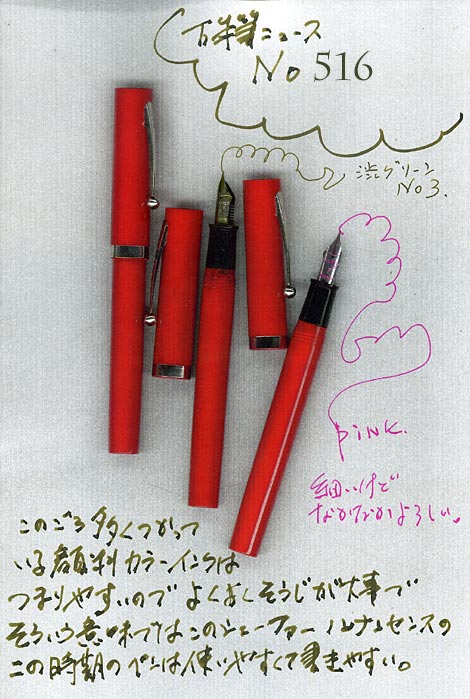 万年筆ニュース
No 516
渋グリーン
No3.
PiNK.
細いけど
なかなかよろしい。
このごろ多くつかって
いる顔料カラーインクは
つまりやすいので よくよくそうじが大事で
そういう意味ではこのシェーファー ノンナンセンスの
この時期のペンは使いやすくて書きやすい。